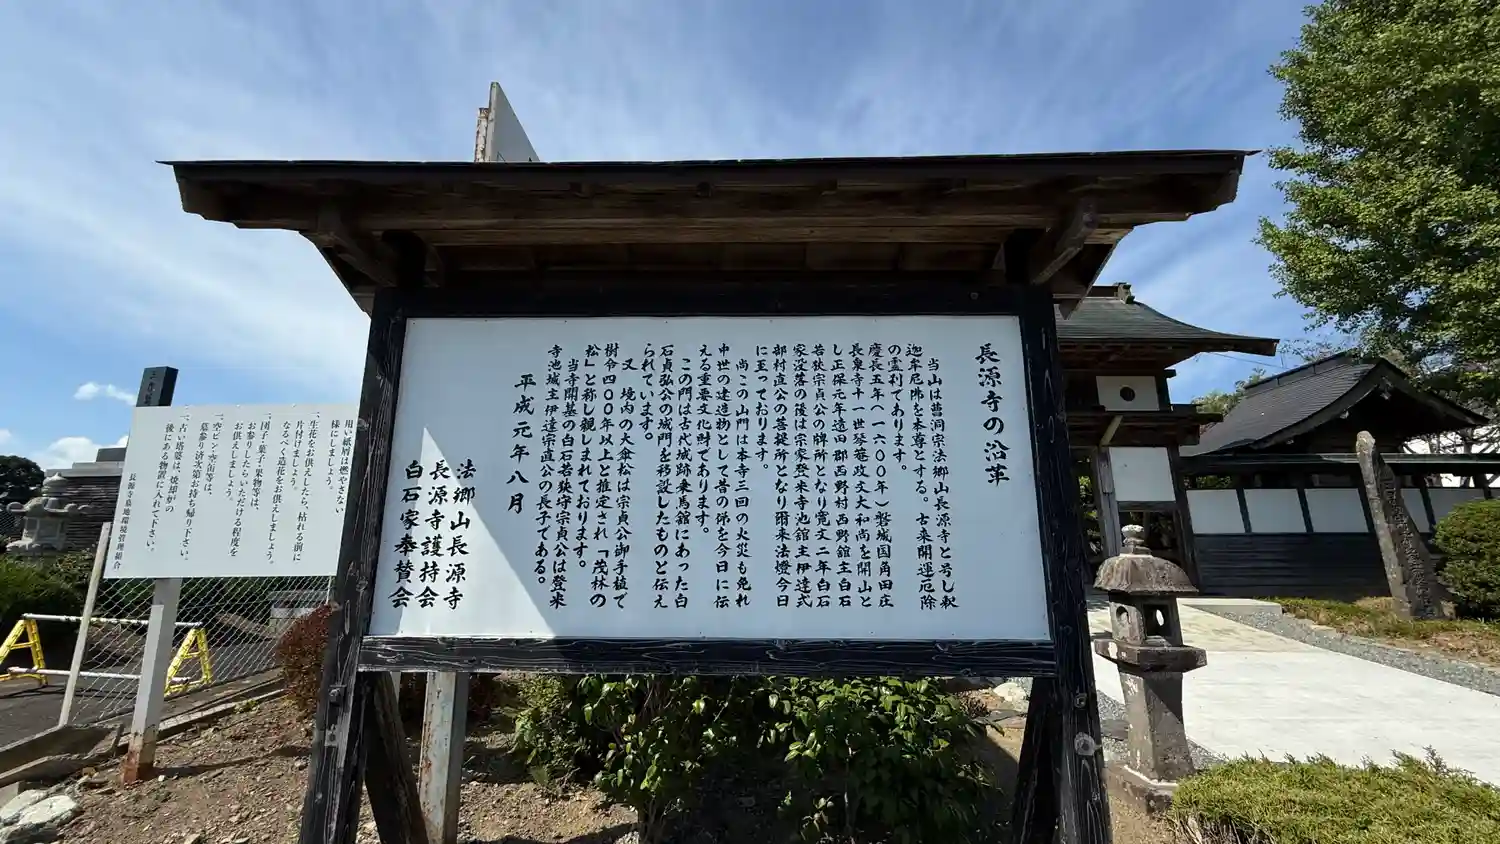 長源寺の沿革
当山は曹洞宗法郷山長源寺と号し釈
迦牟尼佛を本尊とする。古来開運厄除
の霊刹であります。
慶長五年（一六〇〇年）磐城国角田庄
長泉寺十一世琴菴政文大和尚を開山と
し正保元年遠田郡西野村西野舘主白石
若狭宗貞公の牌所となり寛文二年白石
家没落の後は宗家登米寺池舘主伊達式
部村直公の菩提所となり爾来法燈今日
に至っております。
尚この山門は本寺三回の火災も免れ
中世の建造物として昔の俤を今日に伝
える重要文化財であります。
この門は古代城跡乗馬舘にあった白
石貞弘公の城門を移設したものと伝え
られています。
又、境内の大傘松は宗貞公御手植で
樹令四〇〇年以上と推定され「茂林の
松」と称し親しまれております。
当寺開基の白石若狭守宗貞公は登米
寺池城主伊達宗直公の長子である。
平成元年八月
法郷山長源寺
長源寺護持会
白石家奉賛会
用い紙屑は燃やさない
様にしましょう。
一、生花をお供したら、枯れる前に
片付けましょう。
なるべく造花をお供えしましょう。
一、団子・菓子・果物等は、
お参りしたらいただける程度を
お供えしましょう。
一、空ビン・空缶等は、
墓参り済次第お持ち帰り下さい。
一、古い塔婆は、焼却が
後にある物置に入れて下さい。
長源寺墓地環境管理組合